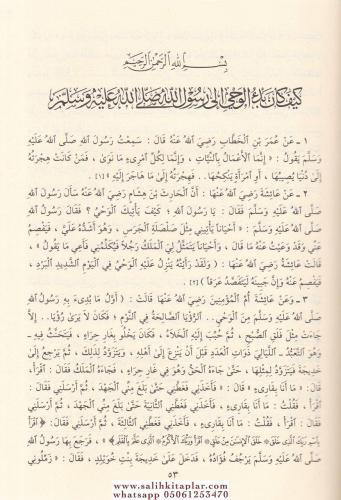 بِسْمِ اللهِ الرَّحْمٰنِ الرَّحِيمِ
كيف كان بدء الوحي إلى رسول الله صلى الله عليه وسلم
١ - عَنْ عُمَرَ بْنِ الْخَطَّابِ رَضِيَ اللهُ عَنْهُ قَالَ : سَمِعْتُ رَسُولَ اللهِ صَلَّى اللهُ عَلَيْهِ
وَسَلَّمَ يَقُولُ : « إِنَّمَا الْأَعْمَالُ بِالنِّيَّاتِ ، وَإِنَّمَا لِكُلِّ امْرِئٍ مَا نَوَى ، فَمَنْ كَانَتْ هِجْرَتُهُ
إِلَى دُنْيَا يُصِيبُهَا ، أَوِ امْرَأَةٍ يَنْكِحُهَا .. فَهِجْرَتُهُ إِلَى مَا هَاجَرَ إِلَيْهِ » [١] .
٢ - عَنْ عَائِشَةَ رَضِيَ اللهُ عَنْهَا : أَنَّ الْحَارِثَ بْنَ هِشَامٍ رَضِيَ اللهُ عَنْهُ سَأَلَ رَسُولَ اللهِ
صَلَّى اللهُ عَلَيْهِ وَسَلَّمَ فَقَالَ : يَا رَسُولَ اللهِ ؛ كَيْفَ يَأْتِيكَ الْوَحْيُ ؟ فَقَالَ رَسُولُ اللهِ
صَلَّى اللهُ عَلَيْهِ وَسَلَّمَ : « أَحْيَاناً يَأْتِينِي مِثْلَ صَلْصَلَةِ الْجَرَسِ ، وَهُوَ أَشَدُّهُ عَلَيَّ ، فَيَفْصِمُ
عَنِّي وَقَدْ وَعَيْتُ عَنْهُ مَا قَالَ ، وَأَحْيَاناً يَتَمَثَّلُ لِيَ الْمَلَكُ رَجُلاً فَيُكَلِّمُنِي فَأَعِي مَا يَقُولُ » ،
قَالَتْ عَائِشَةُ رَضِيَ اللهُ عَنْهَا : ( وَلَقَدْ رَأَيْتُهُ يَنْزِلُ عَلَيْهِ الْوَحْيُ فِي الْيَوْمِ الشَّدِيدِ الْبَرْدِ ،
فَيَفْصِمُ عَنْهُ وَإِنَّ جَبِينَهُ لَيَتَفَصَّدُ عَرَقاً ) [٢] .
٣ - عَنْ عَائِشَةَ أُمِّ الْمُؤْمِنِينَ رَضِيَ اللهُ عَنْهَا قَالَتْ : ( أَوَّلُ مَا بُدِىءَ بِهِ رَسُولُ اللهِ
صَلَّى اللهُ عَلَيْهِ وَسَلَّمَ مِنَ الْوَحْيِ .. الرُّؤْيَا الصَّالِحَةُ فِي النَّوْمِ ، فَكَانَ لَا يَرَىٰ رُؤْيَا .. إِلَّا
جَاءَتْ مِثْلَ فَلَقِ الصُّبْحِ ، ثُمَّ حُبِّبَ إِلَيْهِ الْخَلَاءُ ، فَكَانَ يَخْلُو بِغَارِ حِرَاءٍ ، فَيَتَحَنَّثُ فِيهِ -
وَهُوَ التَّعَبُّدُ - اللَّيَالِيَ ذَوَاتِ الْعَدَدِ قَبْلَ أَنْ يَنْزِعَ إِلَى أَهْلِهِ ، وَيَتَزَوَّدُ لِذَلِكَ ، ثُمَّ يَرْجِعُ إِلَىٰ
خَدِيجَةَ فَيَتَزَوَّدُ لِمِثْلِهَا ، حَتَّىٰ جَاءَهُ الْحَقُّ وَهُوَ فِي غَارِ حِرَاءٍ ، فَجَاءَهُ الْمَلَكُ فَقَالَ : اقْرَأْ ،
قَالَ : « مَا أَنَا بِقَارِىءٍ » قَالَ : « فَأَخَذَنِي فَغَطَّنِي حَتَّىٰ بَلَغَ مِنِّي الْجَهْدَ ، ثُمَّ أَرْسَلَنِي فَقَالَ :
اقْرَأْ ، فَقُلْتُ : مَا أَنَا بِقَارِىءٍ ، فَأَخَذَنِي فَغَطَّنِي الثَّانِيَةَ حَتَّىٰ بَلَغَ مِنِّي الْجَهْدَ ، ثُمَّ أَرْسَلَنِي
فَقَالَ : اقْرَأْ ، فَقُلْتُ : مَا أَنَا بِقَارِىءٍ ، فَأَخَذَنِي فَغَطَّنِي الثَّالِثَةَ ، ثُمَّ أَرْسَلَنِي فَقَالَ : ﴿اقْرَأْ
بِاسْمِ رَبِّكَ الَّذِي خَلَقَ * خَلَقَ الْإِنْسَنَ مِنْ عَلَقٍ * اقْرَأْ وَرَبُّكَ الْأَكْرَمُ * الَّذِي عَلَّمَ بِالْقَلَمِ﴾ » ، فَرَجَعَ بِهَا رَسُولُ اللهِ
صَلَّى اللهُ عَلَيْهِ وَسَلَّمَ يَرْجُفُ فُؤَادُهُ ، فَدَخَلَ عَلَىٰ خَدِيجَةَ بِنْتِ خُوَيْلِدٍ ، فَقَالَ : « زَمِّلُونِي
٥٣
www.salihkitaplar.com
whatsapp 05061253470